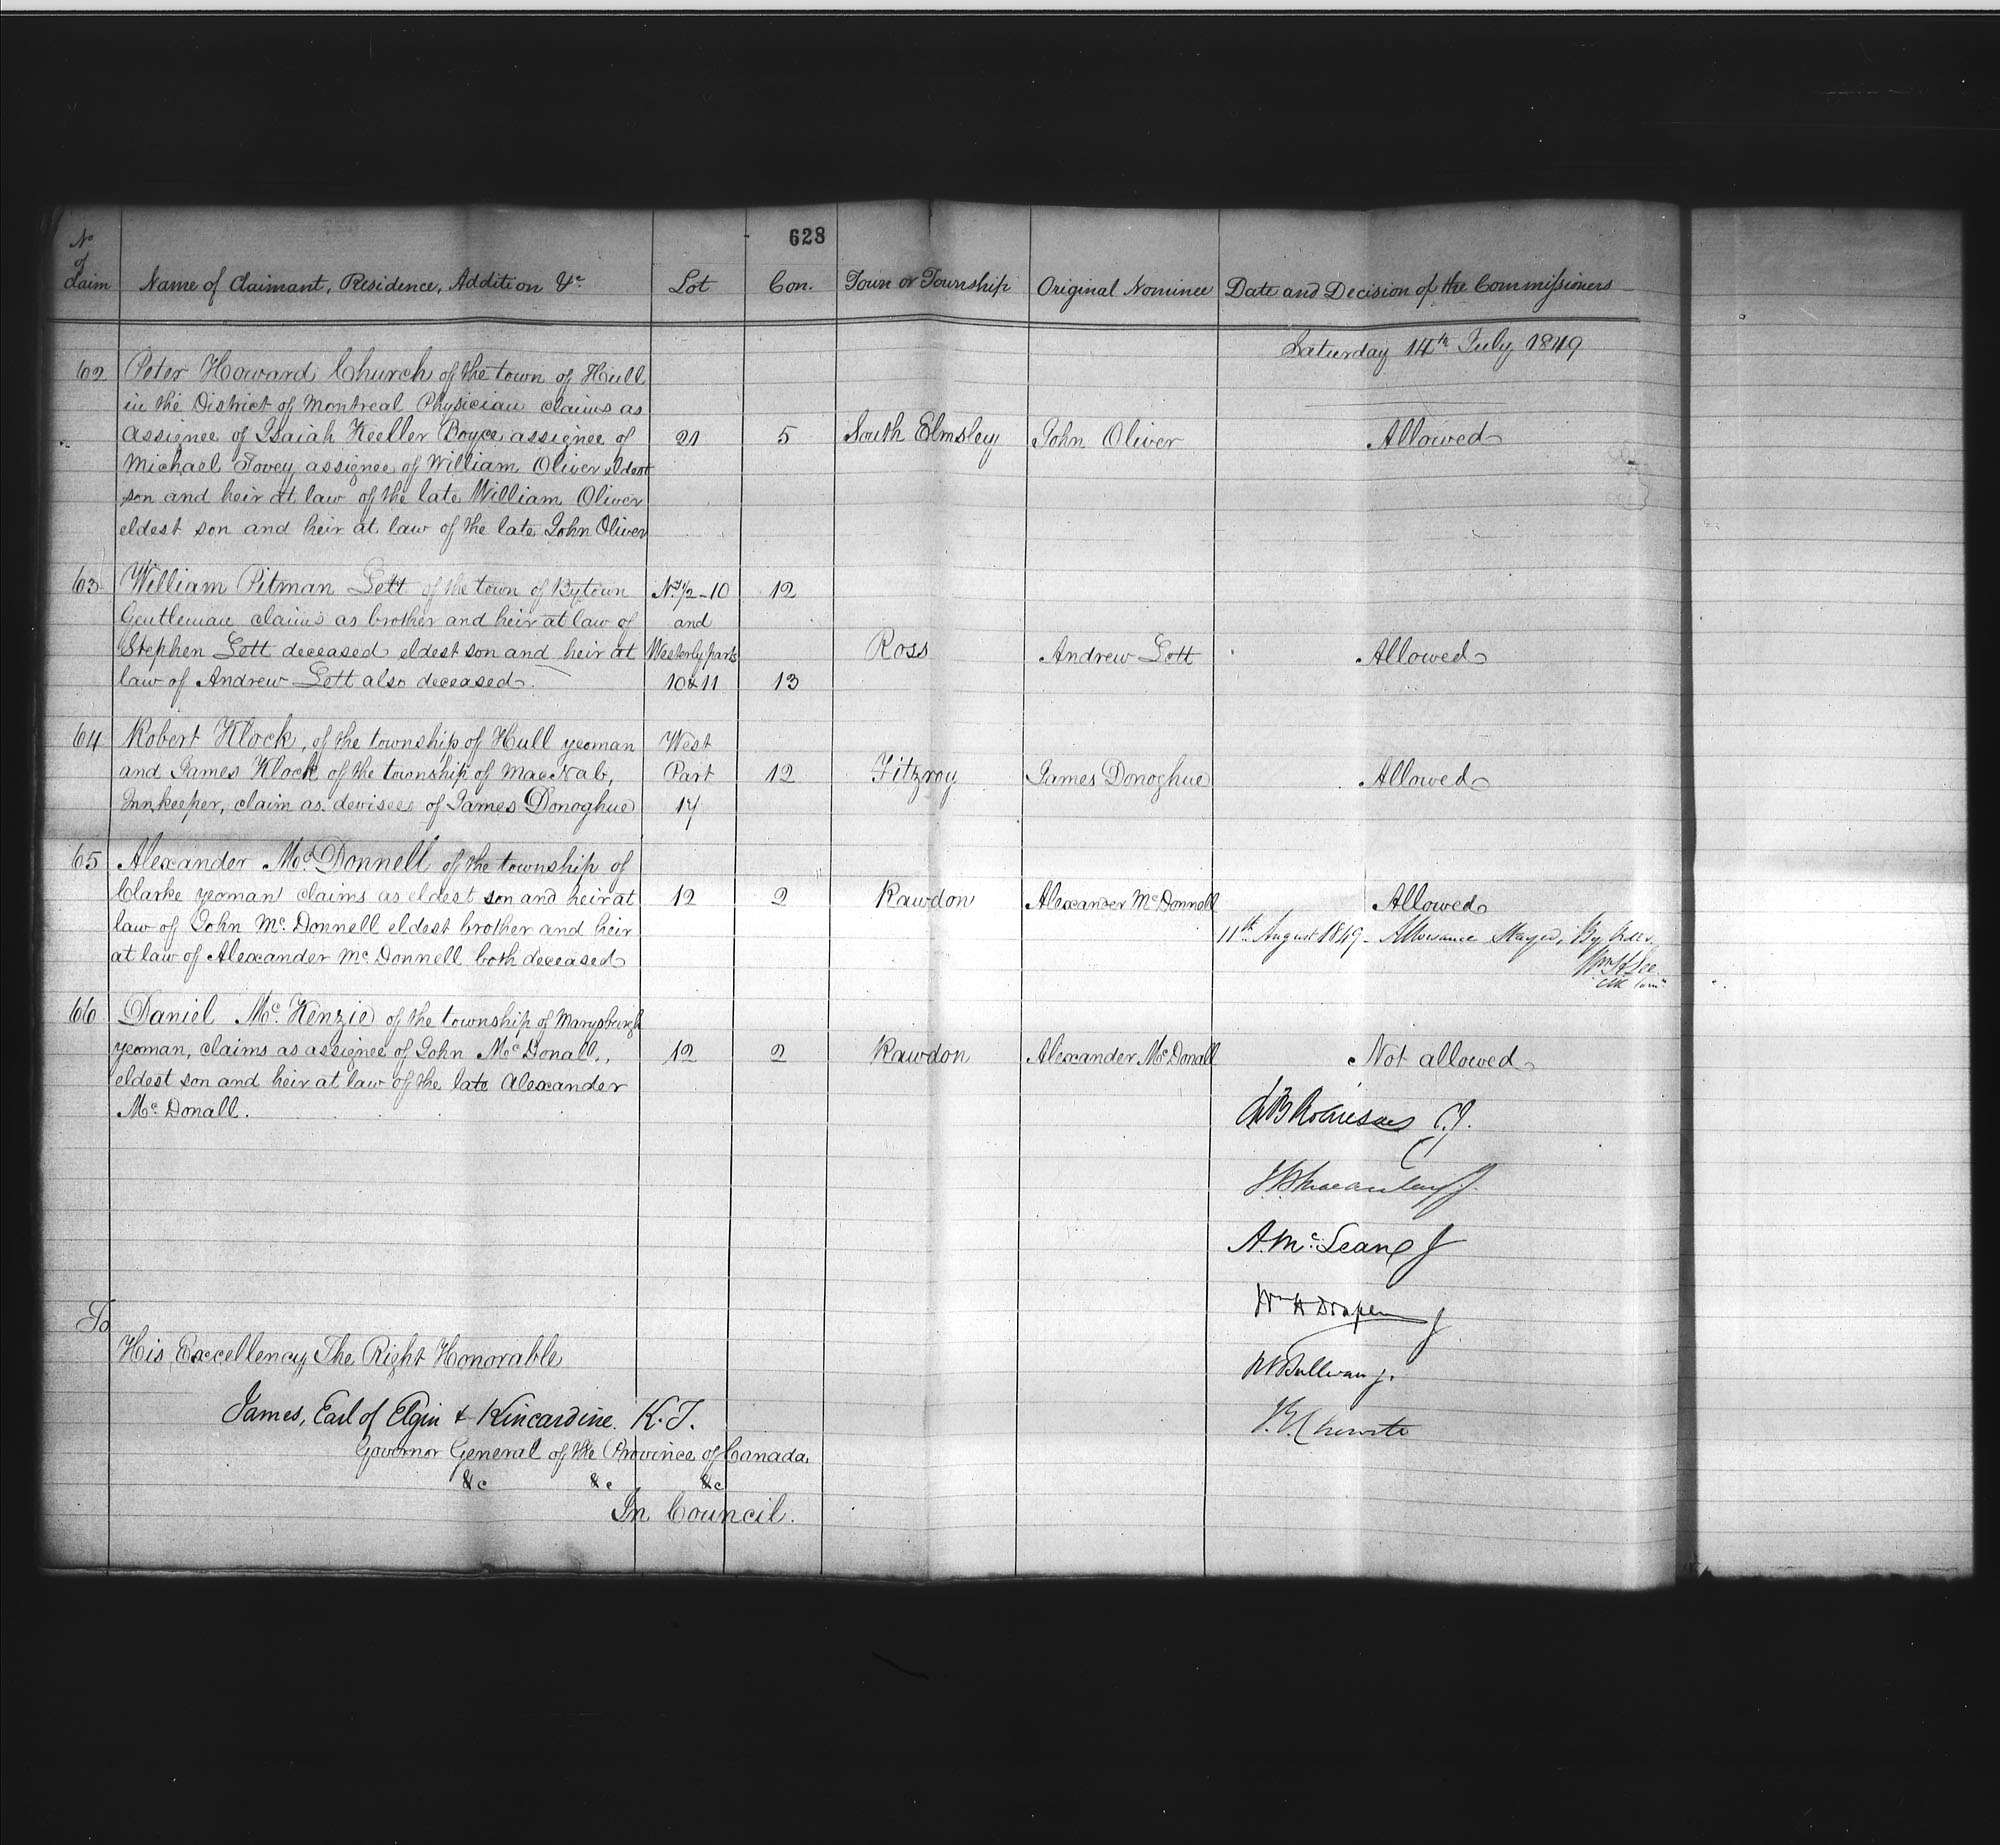 628
No of Claim
Name of Claimant, Residence, Addition &c
Lot
Con.
Town or Township
Original Nominee
Date and Decision of the Commissioners
Saturday 14th July 1849
62
Peter Howard Church of the town of Hull
in the District of Montreal Physician claims as
assignee of Isaiah Keeller Boyce assignee of
Michael Tovey assignee of William Oliver eldest
son and heir at law of the late William Oliver
eldest son and heir at law of the late John Oliver
21
5
South Elmsley
John Oliver
Allowed
63
William Pitman Lett of the town of Bytown
Gentleman claims as brother and heir at law of
Stephen Lett deceased eldest son and heir at
law of Andrew Lett also deceased.
1/2 - 10
and
Westerly parts
10 & 11
12
13
Ross
Andrew Lett
Allowed
64
Robert Klock, of the township of Hull yeoman
and James Klock of the township of MacNab,
Innkeeper, claim as devisees of James Donoghue
West
Part
17
12
Fitzroy
James Donoghue
Allowed
65
Alexander McDonnell of the township of
Clarke yeoman claims as eldest son and heir at
law of John McDonnell eldest brother and heir
at law of Alexander McDonnell both deceased
12
2
Rawdon
Alexander McDonnell
Allowed
11th August 1849 - Allowance Stayed, By Order,
Wm H Lee
Clk
66
Daniel McKenzie of the township of Marysburgh
yeoman, claims as assignee of John McDonall,
eldest son and heir at law of the late Alexander
McDonall.
12
2
Rawdon
Alexander McDonall
Not allowed
J B Robinson C.J.
J B Macaulay J.
A. McLean J
Wm H Draper J
R B Sullivan J.
To
His Excellency The Right Honorable
James, Earl of Elgin & Kincardine. K.T.
Governor General of the Province of Canada,
&c &c &c
In Council.